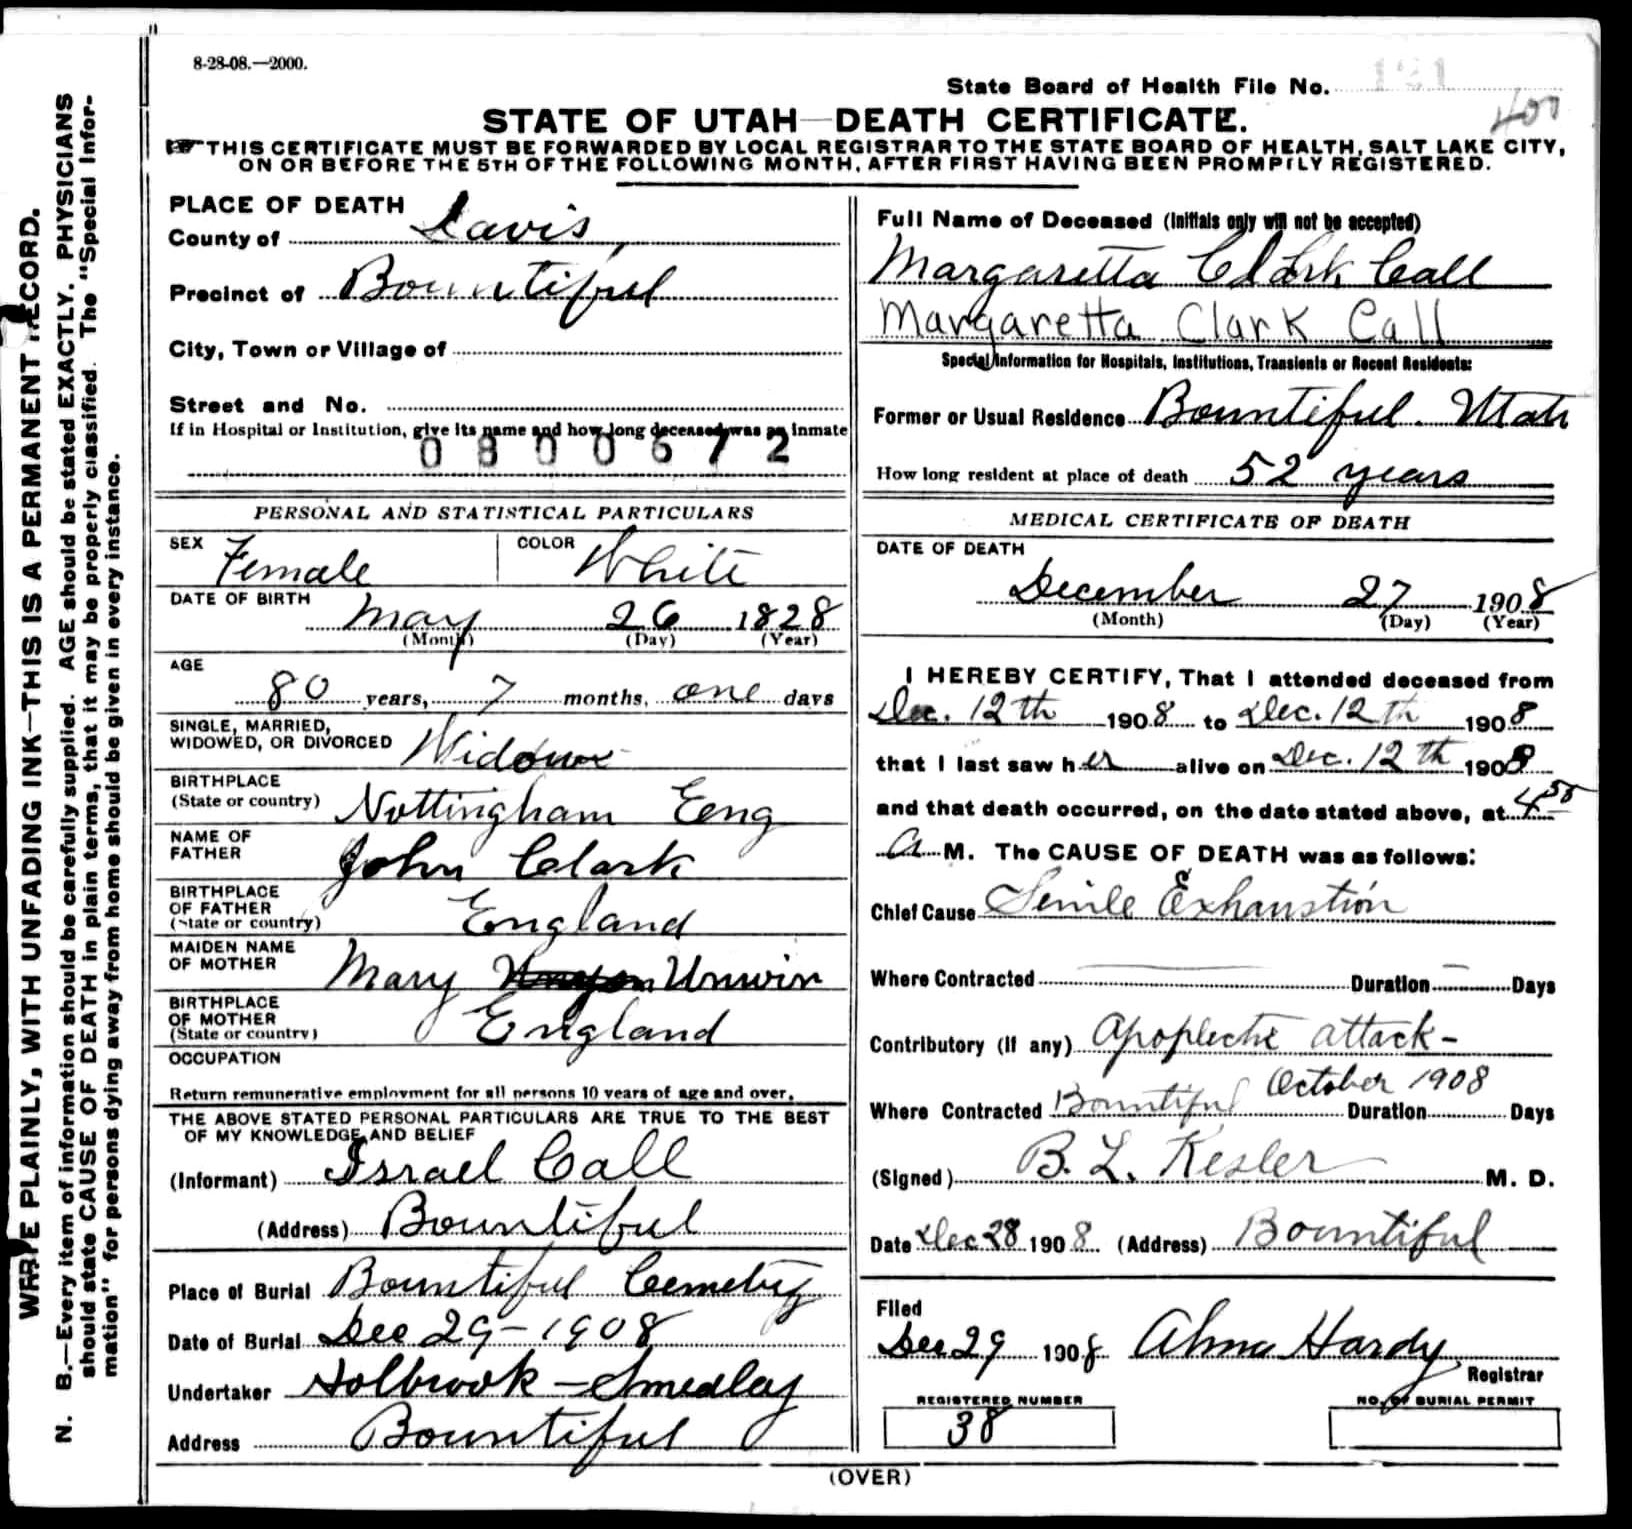 8-28-08.—2000.
State Board of Health File No. 121
400
STATE OF UTAH—DEATH CERTIFICATE.
THIS CERTIFICATE MUST BE FORWARDED BY LOCAL REGISTRAR TO THE STATE BOARD OF HEALTH, SALT LAKE CITY,
ON OR BEFORE THE 5TH OF THE FOLLOWING MONTH, AFTER FIRST HAVING BEEN PROMPTLY REGISTERED.
WRITE PLAINLY, WITH UNFADING INK—THIS IS A PERMANENT RECORD.
N. B.—Every item of information should be carefully supplied. AGE should be stated EXACTLY. PHYSICIANS
should state CAUSE OF DEATH in plain terms, that it may be properly classified. The "Special Infor-
mation" for persons dying away from home should be given in every instance.
PLACE OF DEATH
County of Davis
Precinct of Bountiful
City, Town or Village of
Street and No.
If in Hospital or Institution, give its name and how long deceased was an inmate
0800672
PERSONAL AND STATISTICAL PARTICULARS
SEX Female COLOR White
DATE OF BIRTH
May 26 1828
(Month) (Day) (Year)
AGE
80 years, 7 months, one days
SINGLE, MARRIED,
WIDOWED, OR DIVORCED Widow
BIRTHPLACE
(State or country) Nottingham Eng
NAME OF
FATHER John Clark
BIRTHPLACE
OF FATHER
(State or country) England
MAIDEN NAME
OF MOTHER Mary Unwin
BIRTHPLACE
OF MOTHER
(State or country) England
OCCUPATION
Return remunerative employment for all persons 10 years of age and over.
THE ABOVE STATED PERSONAL PARTICULARS ARE TRUE TO THE BEST
OF MY KNOWLEDGE AND BELIEF
(Informant) Israel Call
(Address) Bountiful
Place of Burial Bountiful Cemetry
Date of Burial Dec 29-1908
Undertaker Holbrook-Smedley
Address Bountiful
Full Name of Deceased (Initials only will not be accepted)
Margaretta Clark Call
Margaretta Clark Call
Special Information for Hospitals, Institutions, Transients or Recent Residents:
Former or Usual Residence Bountiful. Utah
How long resident at place of death 52 years
MEDICAL CERTIFICATE OF DEATH
DATE OF DEATH
December 27 1908
(Month) (Day) (Year)
I HEREBY CERTIFY, That I attended deceased from
Dec. 12th 1908 to Dec. 12th 1908
that I last saw her alive on Dec. 12th 1908
and that death occurred, on the date stated above, at 4 50
A M. The CAUSE OF DEATH was as follows:
Chief Cause Senile Exhaustion
Where Contracted Duration Days
Contributory (If any) Apoplectic attack-
October 1908
Where Contracted Bountiful Duration Days
(Signed) B. L. Kesler M. D.
Date Dec 28 1908 (Address) Bountiful
Filed
Dec 29 1908 Alma Hardy
Registrar
REGISTERED NUMBER
38
NO. OF BURIAL PERMIT
(OVER)